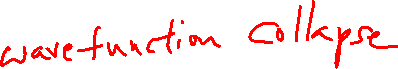 wavefunction collapse